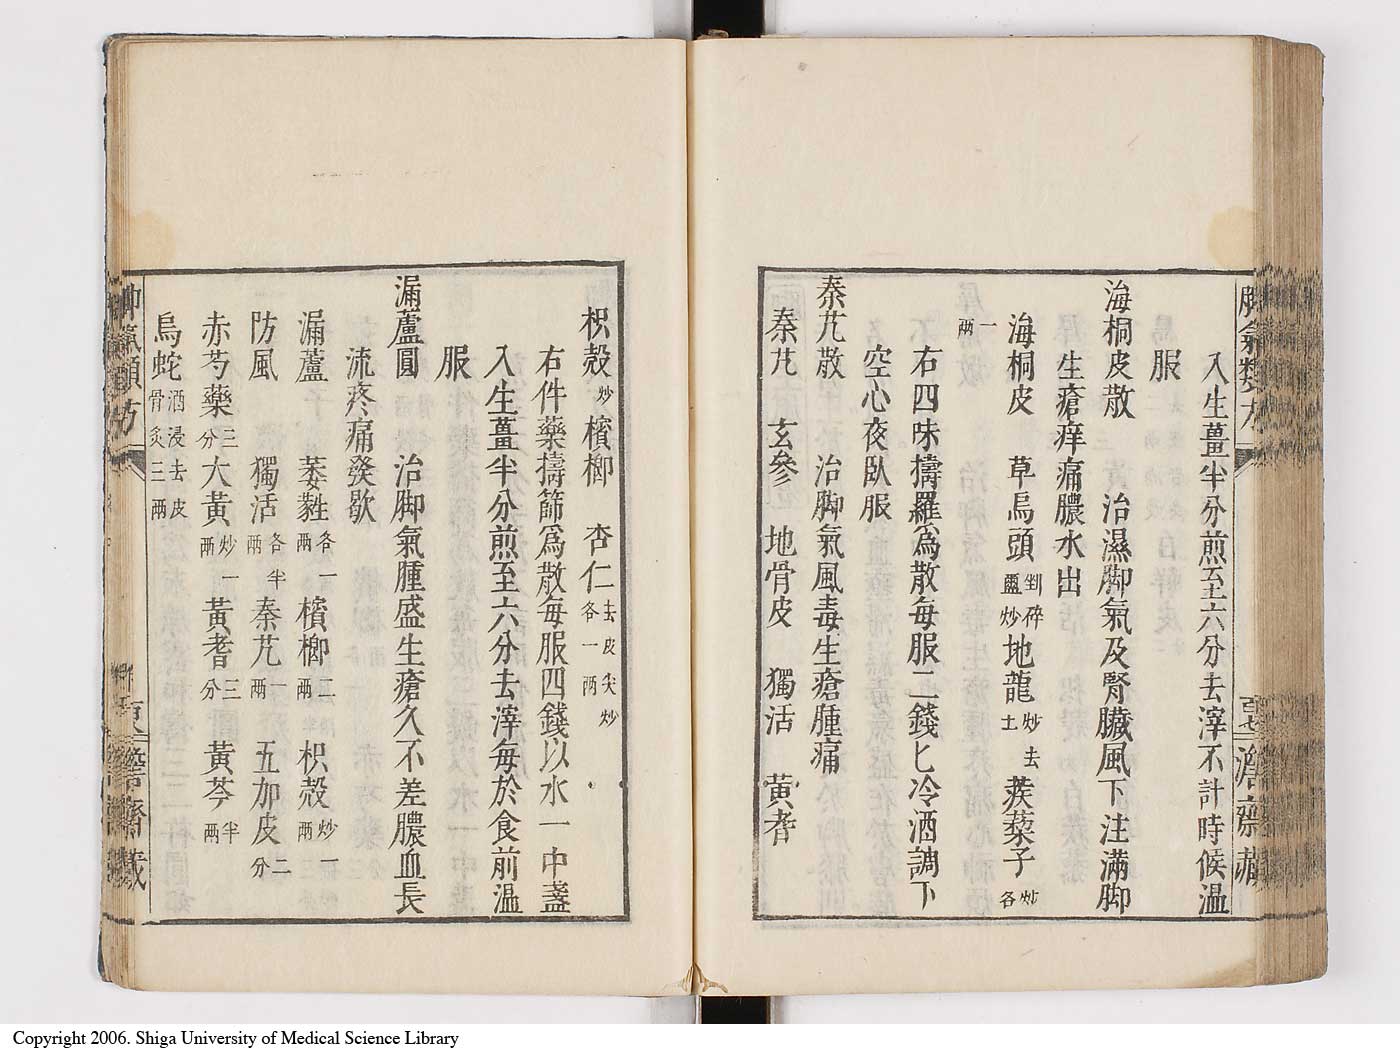 入生薑半分煎至六分去滓不計時候溫
服
海桐皮散　治濕脚氣及腎臟風下注滿脚
生瘡痒痛膿水出
海桐皮　草烏頭剉碎鹽炒地龍炒去土蒺蔾子炒各
一兩
右四味擣羅爲散每服二錢匕冷酒調下
空心夜臥服
秦艽散　治脚氣風毒生瘡腫痛
秦艽　玄參　地骨皮　獨活　黄耆
枳殼炒　檳榔　杏仁去皮尖炒各一兩
右件藥擣篩爲散每服四錢以水一中盞
入生薑半分煎至六分去滓每於食前溫
服
漏蘆圓　治脚氣腫盛生瘡久不差膿血長
流疼痛發歇
漏蘆　萎蕤各一兩　檳榔二兩　枳殼炒一兩
防風　獨活各半兩　秦艽一兩　五加皮二分
赤芍藥三分　大黄炒一兩　黄耆三分　黄芩半兩
烏蛇酒浸去皮骨炙三兩
脚氣類方
聿修
Copyright 2006. Shiga University of Medical Science Library